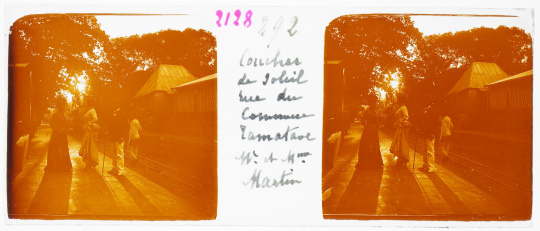 2128
292
Coucher
de Soleil
rue du
Commerce
Tamatave
Mr et Mme
Martin